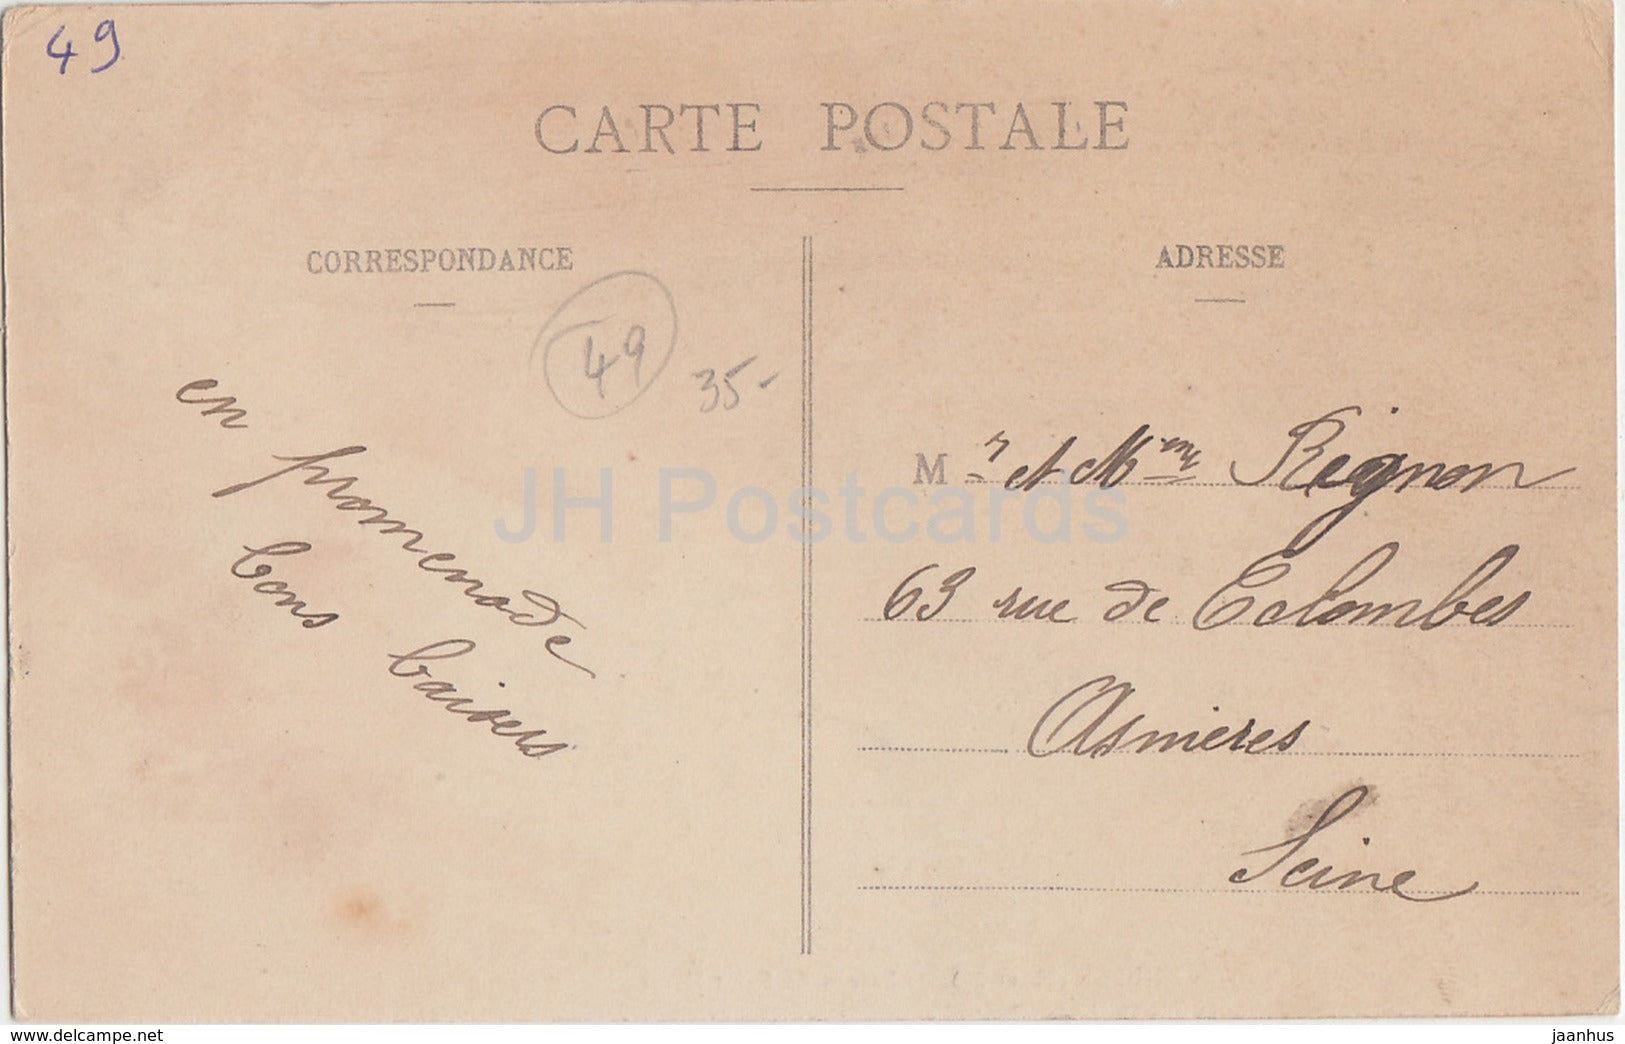 49
CARTE POSTALE
CORRESPONDANCE
49
35-
en promenade
bons baisers
ADRESSE
Mr et Mme Rignon
63 rue de Colombes
Asnieres
Seine
JH Postcards
www.delcampe.net
jaanhus